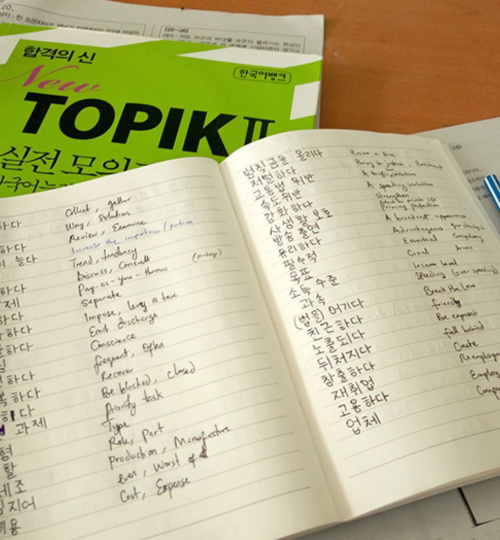 [25~26]
합격의 신
New
한국어뱅크
TOPIK II
실전 모의
하다 Collect, gather
Way, Solution
하다 Review, Examine
이 늘다 Increase the
Trend, tendency
하다 Discuss, Consult
Pay-as-you-throw
제 Separate
하다 Impose, levy a tax
하다 Emit discharge
Conscience
frequent, Often
하다 Recover
하다 Be blocked, closed
과제 Priority task
Type
형 Role, Part
할 Production, Manufacture
제조 even, Worst of
심지어 Cost, Expense
비용
범칙금을 물리다 Raise a fine
처벌하다 Bring to justice,
교통법 위반 A traffic violation
속도위반 A speeding violation
강화하다
사생활 보호
방송 출연 A broadcast appearance
유리하다 Advantageous
필수적 Essential
목표 Goal
소득 수준 Income level
과속 Speeding
(법을) 어기다 Break the law
친근하다 friendly
노출되다 Be exposed
뒤처지다 fall behind
창출하다 Create
재취업
고용하다 Employ
업체